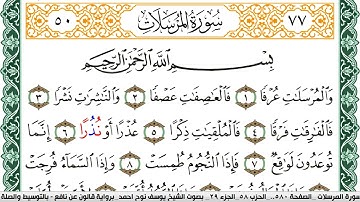 ٧٧ سُورَةُ المُرْسَلَاتِ ٥٠
بِسْمِ اللَّهِ الرَّحْمَٰنِ الرَّحِيمِ
وَالْمُرْسَلَاتِ عُرْفًا ١ فَالْعَاصِفَاتِ عَصْفًا ٢ وَالنَّاشِرَاتِ نَشْرًا ٣
فَالْفَارِقَاتِ فَرْقًا ٤ فَالْمُلْقِيَاتِ ذِكْرًا ٥ عُذْرًا أَوْ نُذُرًا ٦ إِنَّمَا
تُوعَدُونَ لَوَاقِعٌ ٧ فَإِذَا النُّجُومُ طُمِسَتْ ٨ وَإِذَا السَّمَاءُ فُرِجَتْ
سورة المرسلات الصفحة ٥٨٠ الحزب ٥٨ الجزء ٢٩ بصوت الشيخ يوسف نوح احمد برواية قالون عن نافع - بالتوسيط والصلة